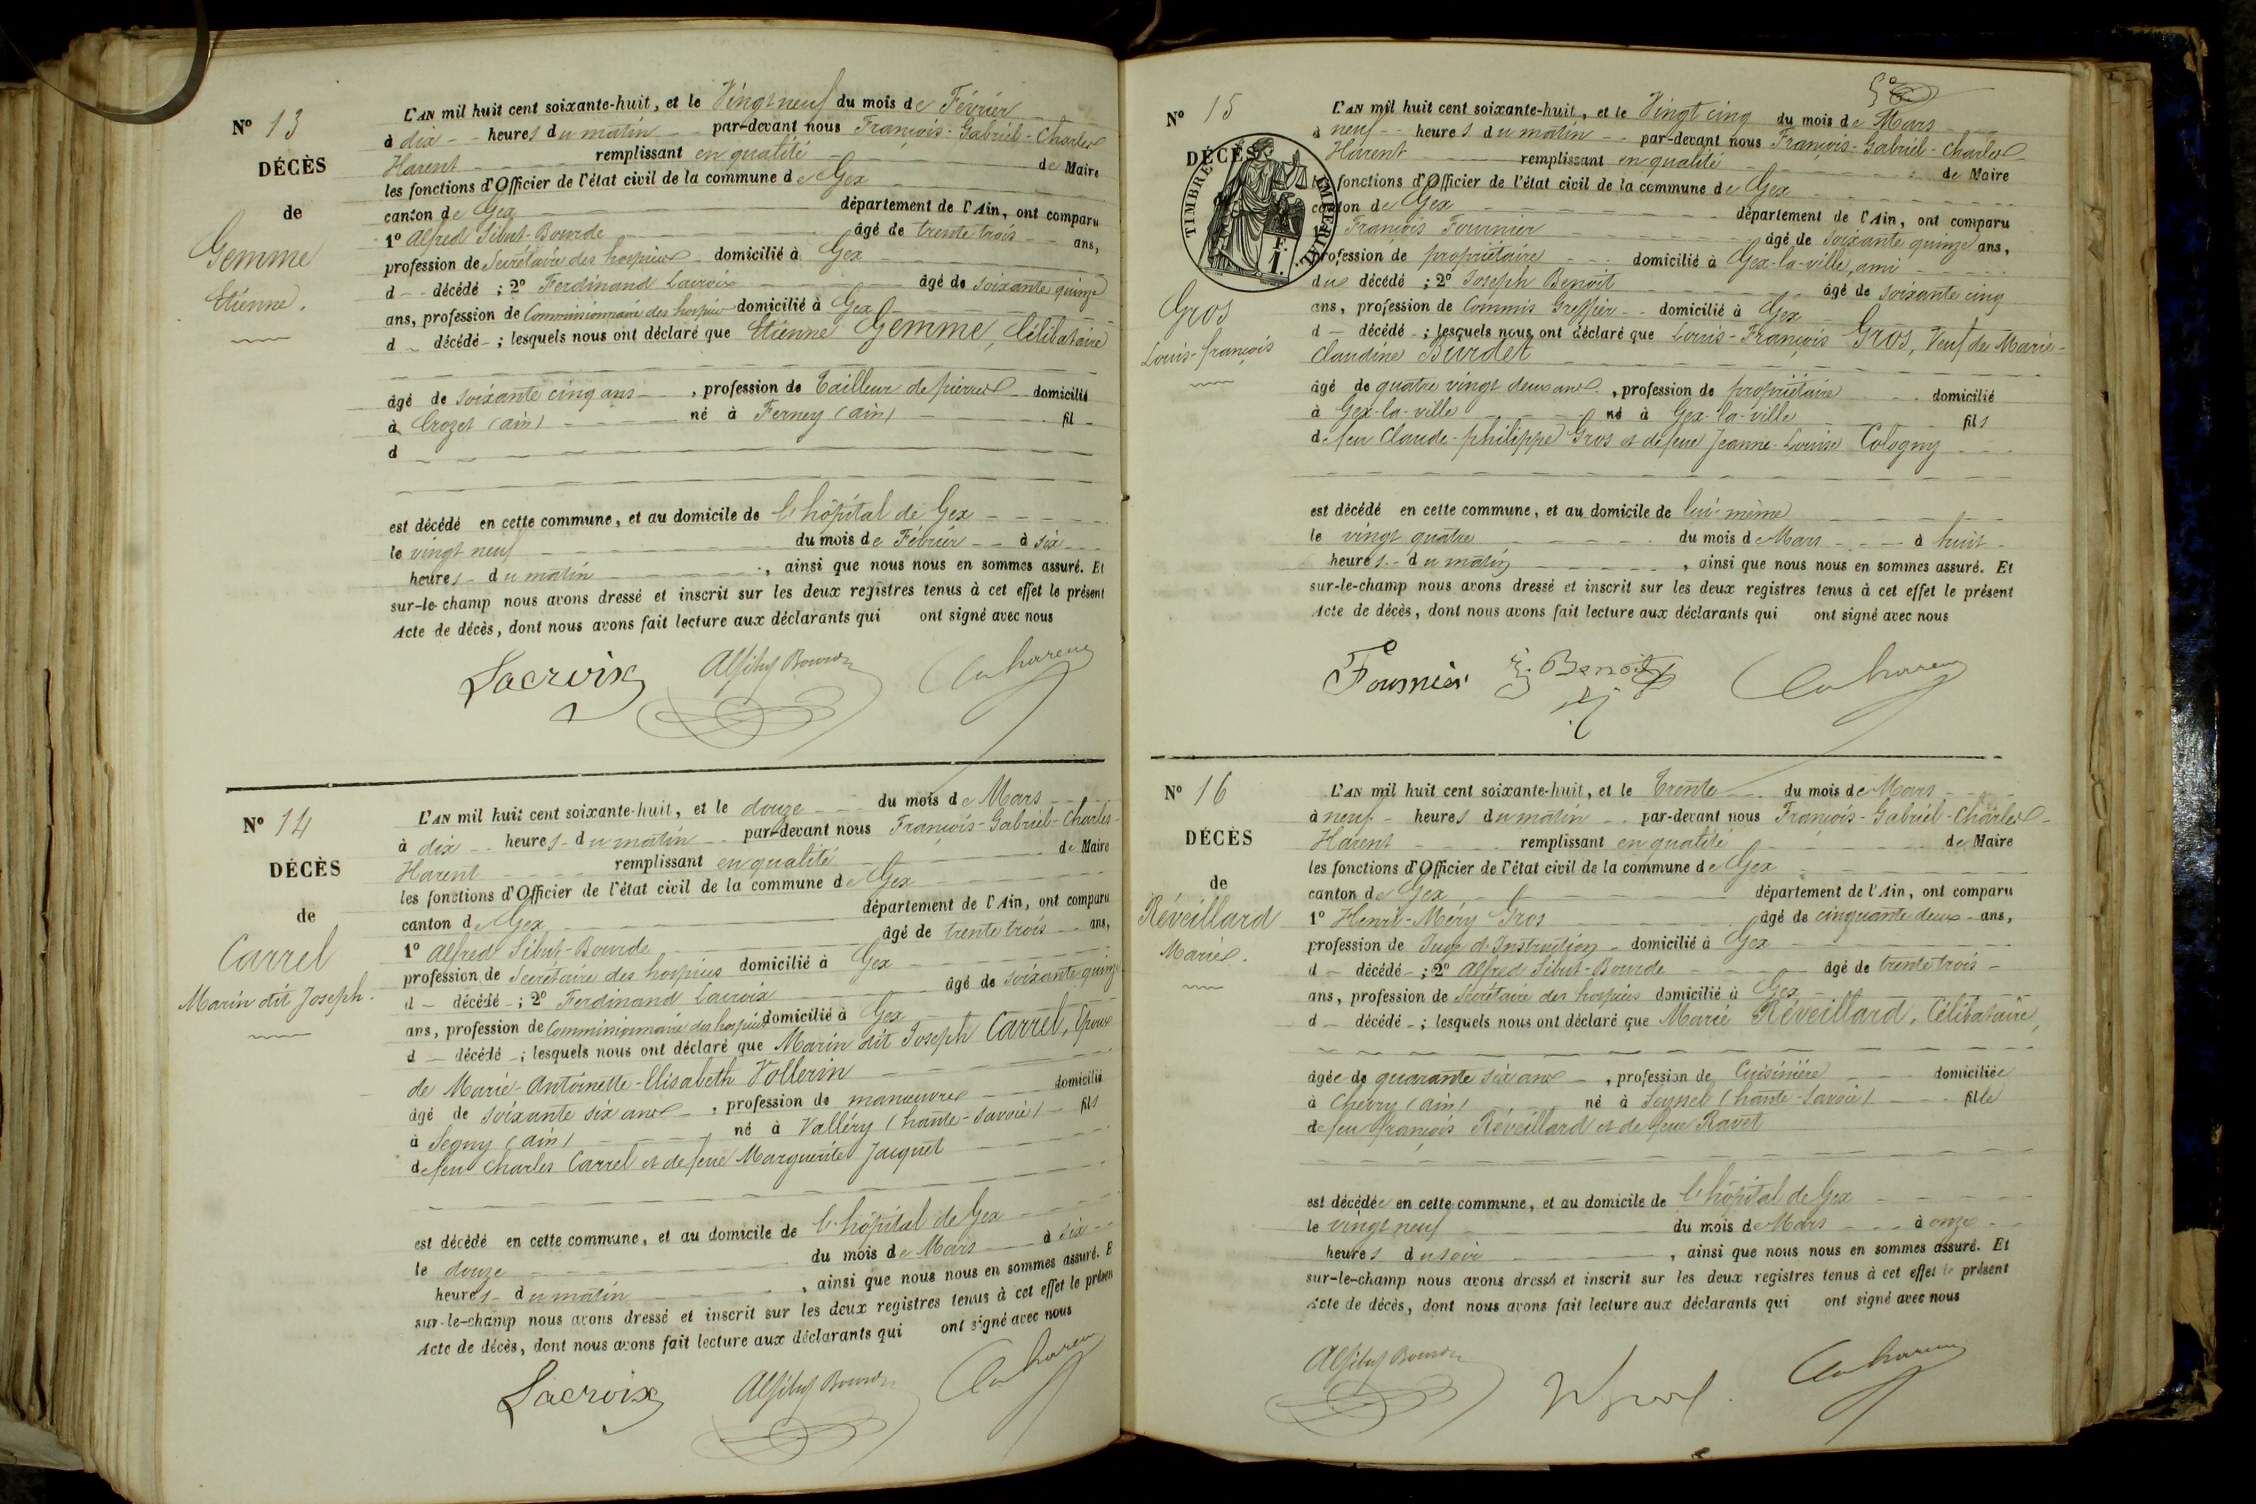 N° 13
DÉCÈS
de
Gemme
Etienne.
L'AN mil huit cent soixante-huit, et le Vingt neuf du mois de Février
à dix heures du matin par-devant nous François-Gabriel-Charles
Harent remplissant en qualité de Maire
les fonctions d'Officier de l'état civil de la commune de Gex
canton de Gex département de l'Ain, ont comparu
1° Alfred Sibut-Bourde âgé de trente trois ans,
profession de Secrétaire des hospices domicilié à Gex
d décédé ; 2° Ferdinand Lacroix âgé de soixante quinze
ans, profession de Commissionnaire des hospices domicilié à Gex
d décédé ; lesquels nous ont déclaré que Etienne Gemme, Célibataire
âgé de soixante cinq ans, profession de Tailleur de pierres domicilié
à Crozet (ain) né à Ferney (ain) fil
d
est décédé en cette commune, et au domicile de l'hôpital de Gex
le vingt neuf du mois de Février à six
heures du matin, ainsi que nous nous en sommes assuré. Et
sur-le-champ nous avons dressé et inscrit sur les deux registres tenus à cet effet le présent
Acte de décès, dont nous avons fait lecture aux déclarants qui ont signé avec nous
Lacroix
N° 14
DÉCÈS
de
Carrel
Marin dit Joseph.
L'AN mil huit cent soixante-huit, et le douze du mois de Mars
à dix heures du matin par-devant nous François-Gabriel-Charles
Harent remplissant en qualité de Maire
les fonctions d'Officier de l'état civil de la commune de Gex
canton de Gex département de l'Ain, ont comparu
1° Alfred Sibut-Bourde âgé de trente trois ans,
profession de Secrétaire des hospices domicilié à Gex
d décédé ; 2° Ferdinand Lacroix âgé de soixante quinze
ans, profession de Commissionnaire des hospices domicilié à Gex
d décédé ; lesquels nous ont déclaré que Marin dit Joseph Carrel, Epoux
de Marie-Antoinette-Elisabeth Vollerin
âgé de soixante six ans, profession de manœuvre domicilié
à Segny (ain) né à Valléry (haute-Savoie) fils
de feu Charles Carrel et de feue Marguerite Jacquet
est décédé en cette commune, et au domicile de l'hôpital de Gex
le douze du mois de Mars à six
heures du matin, ainsi que nous nous en sommes assuré. E
sur-le-champ nous avons dressé et inscrit sur les deux registres tenus à cet effet le présen
Acte de décès, dont nous avons fait lecture aux déclarants qui ont signé avec nous
Lacroix
N° 15
DÉCÈS
TIMBRE IMPÉRIAL
Gros
Louis-françois
L'AN mil huit cent soixante-huit, et le Vingt cinq du mois de Mars
à neuf heures du matin par-devant nous François-Gabriel-Charles
Harent remplissant en qualité de Maire
les fonctions d'Officier de l'état civil de la commune de Gex
canton de Gex département de l'Ain, ont comparu
François Fournier âgé de soixante quinze ans,
profession de propriétaire domicilié à Gex-la-ville, ami
du décédé ; 2° Joseph Benoit âgé de soixante cinq
ans, profession de Commis Greffier domicilié à Gex
d décédé ; lesquels nous ont déclaré que Louis-François Gros, Veuf de Marie-
Claudine Burdet
âgé de quatre vingt deux ans, profession de propriétaire domicilié
à Gex-la-ville né à Gex-la-ville fils
de feu Claude-philippe Gros et de feue Jeanne-Louise Cologny
est décédé en cette commune, et au domicile de lui-même
le vingt quatre du mois de Mars à huit
heures du matin, ainsi que nous nous en sommes assuré. Et
sur-le-champ nous avons dressé et inscrit sur les deux registres tenus à cet effet le présent
Acte de décès, dont nous avons fait lecture aux déclarants qui ont signé avec nous
Fournier J. Benoit
N° 16
DÉCÈS
de
Réveillard
Marie.
L'AN mil huit cent soixante-huit, et le Trente du mois de Mars
à neuf heures du matin par-devant nous François-Gabriel-Charles
Harent remplissant en qualité de Maire
les fonctions d'Officier de l'état civil de la commune de Gex
canton de Gex département de l'Ain, ont comparu
1° Henri-Méry Gros âgé de cinquante deux ans,
profession de Juge d'Instruction domicilié à Gex
d décédé ; 2° Alfred Sibut-Bourde âgé de trente trois
ans, profession de Secrétaire des hospices domicilié à Gex
d décédé ; lesquels nous ont déclaré que Marie Réveillard, Célibataire,
âgée de quarante six ans, profession de Cuisinière domiciliée
à Chevry (ain) né à Seyssel (haute-Savoie) fille
de feu françois Réveillard et de feue Ravet
est décédée en cette commune, et au domicile de l'hôpital de Gex
le vingt neuf du mois de Mars à onze
heures du soir, ainsi que nous nous en sommes assuré. Et
sur-le-champ nous avons dressé et inscrit sur les deux registres tenus à cet effet le présent
Acte de décès, dont nous avons fait lecture aux déclarants qui ont signé avec nous